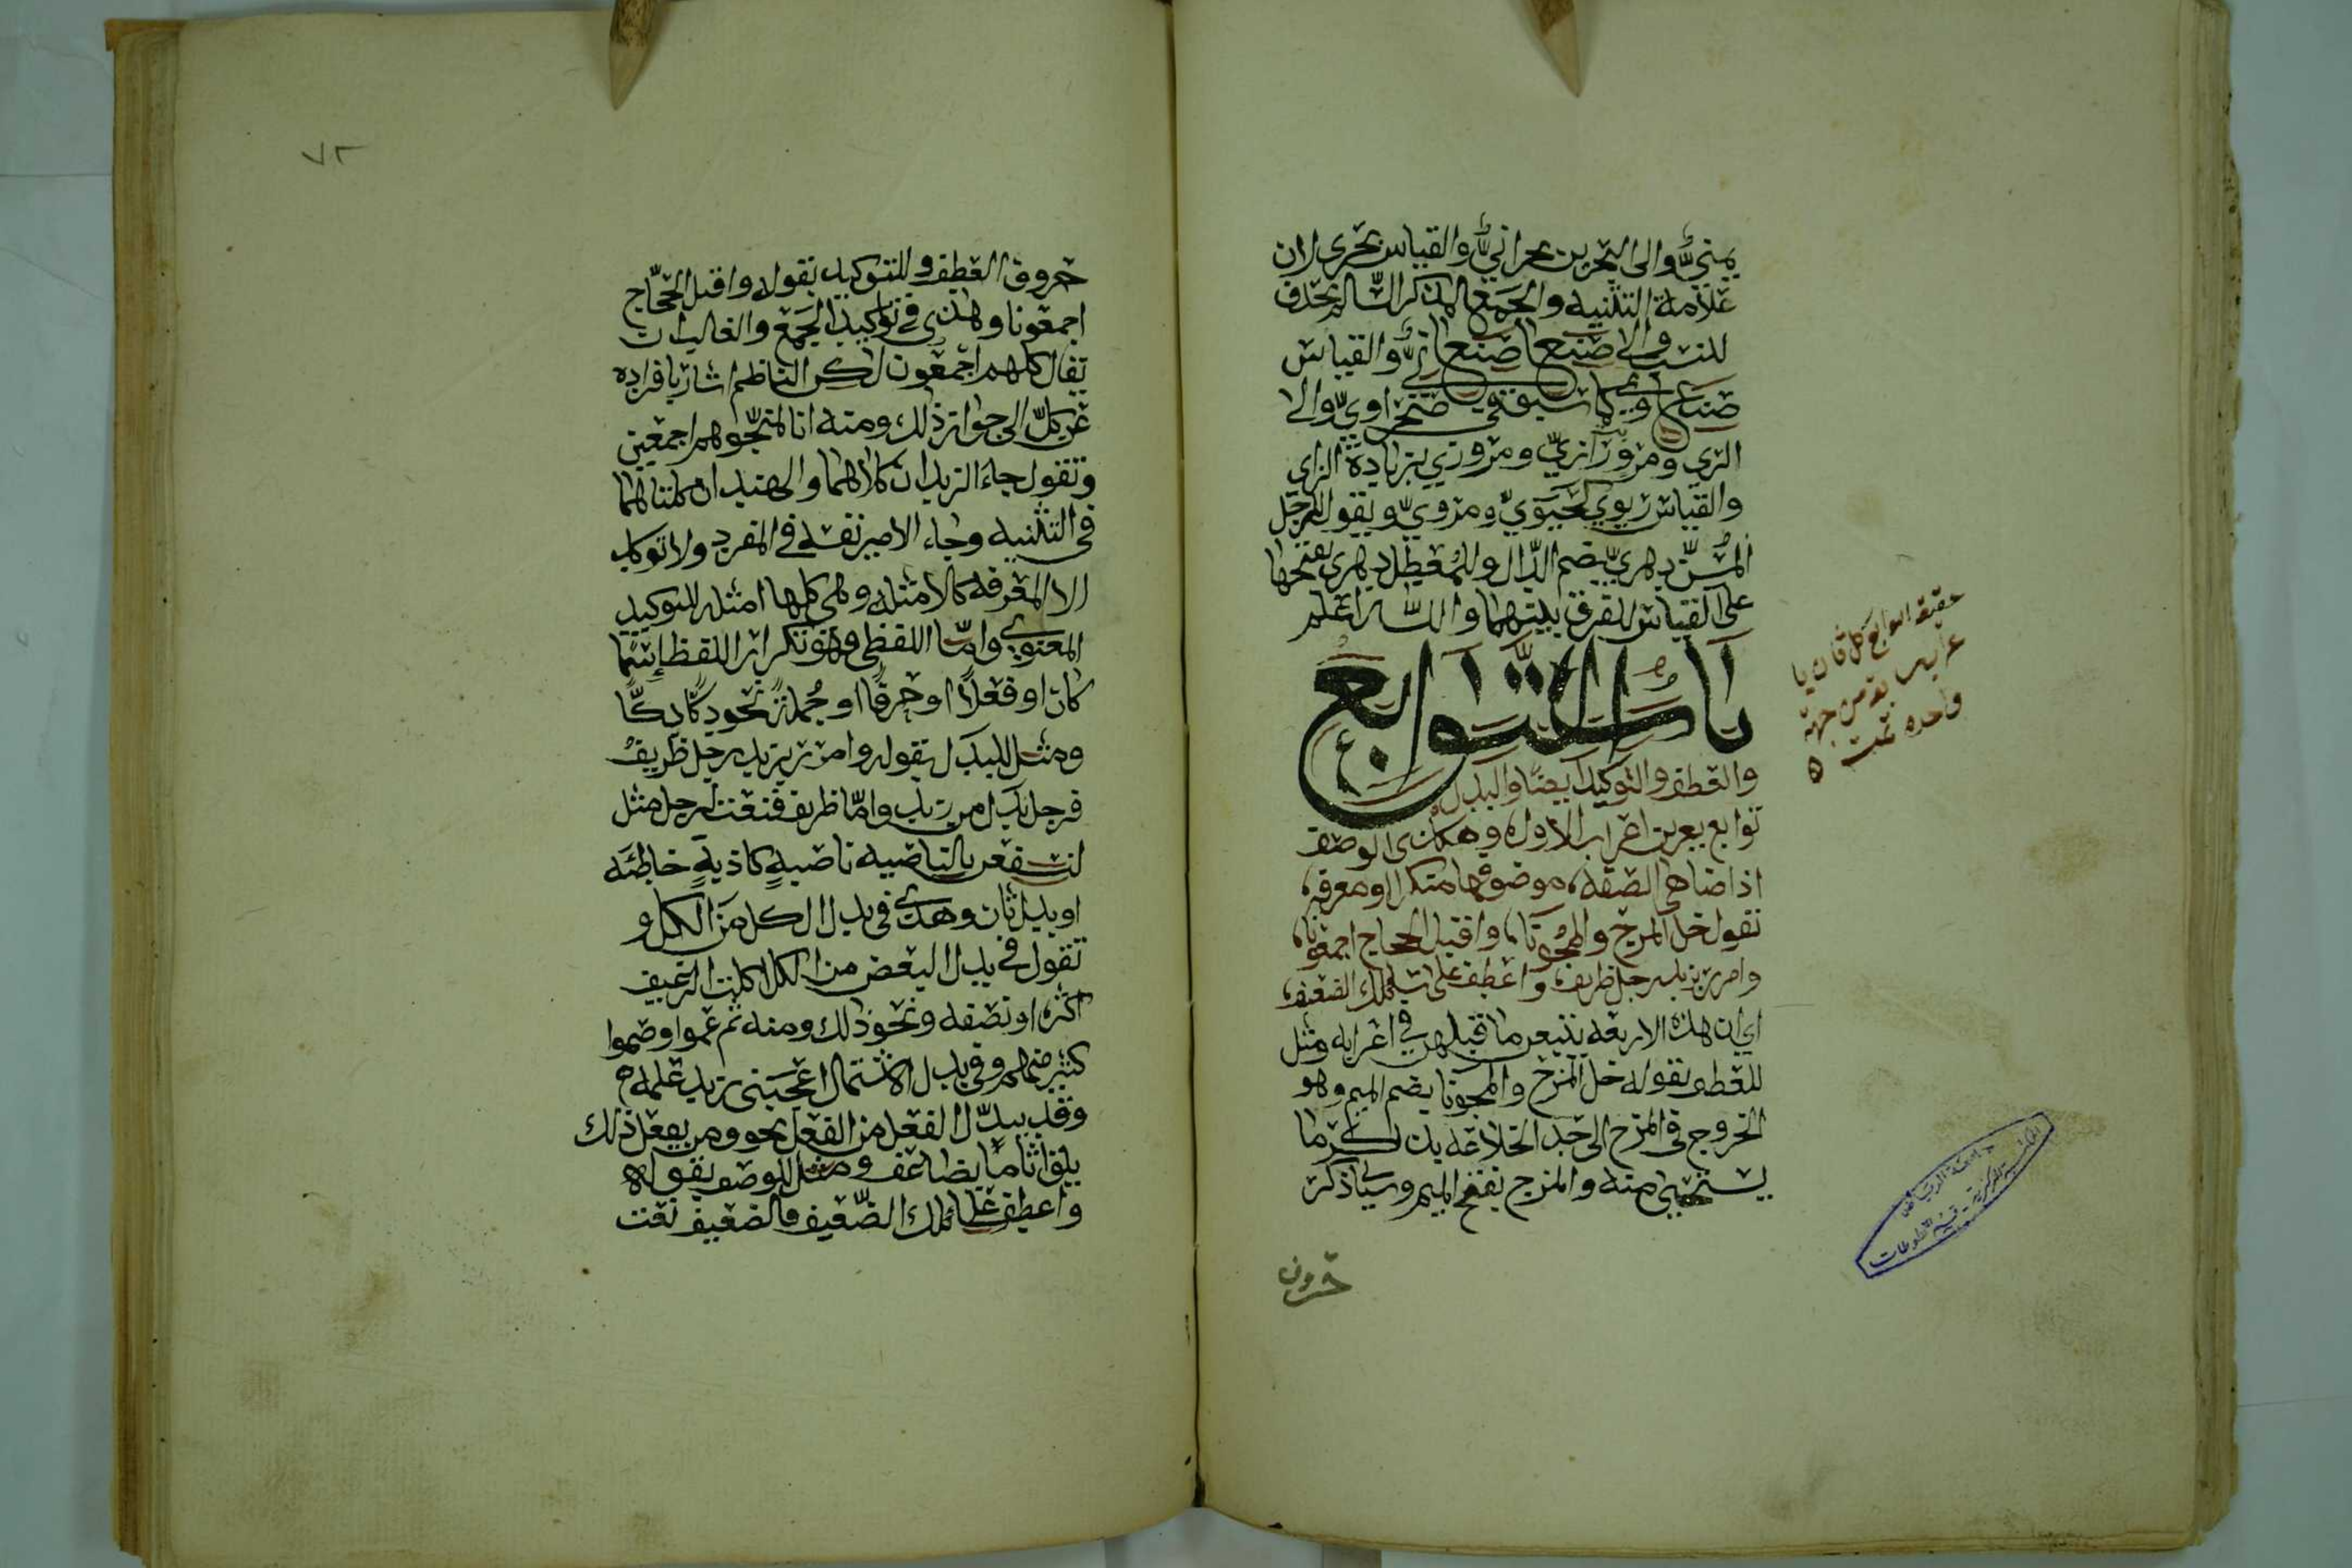 يمنيٌّ والى البحرين بحرانيٌّ والقياس بحري لان
علامة التثنيه والجمع المذكر السالم تحذف
للنسب والى صنعا صنعانيٌّ والقياس
صنعاوي كما سبق في صحراويّ والى
الري ومرو رازيّ ومروزي بزيادة الزاي
والقياس ريوي كحيويّ ومرويّ ويقول للرجل
المسنّ دهريّ بضم الدّال وللمعطل دهري بفتحها
على القياس للفرق بينهما والله اعلم
باب التوابع
والعطف والتوكيد ايضًا والبدل
توابع يعربن اعراب الاول وهكذى الوصف
اذا ضاهى الصفه موصوفها منكرا او معرفه
تقول خل المزح والمجونا واقبل الحجاج اجمعونا
وامرر بزيد رجل ظريف واعطف على سايلك الضعيف
اي ان هذه الاربعه يتبعن ما قبلهن في اعرابه ومثل
للعطف بقوله خل المزح والمجونا بضم الميم وهو
الخروج في المزح الى حد الخلاعه بذكر ما
يستحيى منه والمزح بفتح الميم وسياذكر
حروف
حقيقة التوابع كل ثان با
عراب سابقه من جهة
واحده تمت
حروف العطف وللتوكيد بقوله واقبل الحجّاج
اجمعونا وهذى في توكيد الجمع والغالب ان
يقال كلهم اجمعون لكن الناظم اشار بافراده
عن كلّ الى جواز ذلك ومنه انا لمنجّوهم اجمعين
وتقول جاء الزيدان كلاهما والهندان كلتاهما
في التثنيه وجاء الامير نفسه في المفرد ولا توكد
الا المعرفه كالامثله وهي كلها امثله للتوكيد
المعنوي وامّا اللفظي فهو تكرار اللفظ إسمًا
كان او فعلاً او حرفًا او جُملةً نحو دكًّا دكًّا
ومثل للبدل بقوله وامرر بزيد رجل ظريف
فرجل بدل من زيد وامّا ظريف فنعت لرجل مثل
لنسفعن بالناصيه ناصيةٍ كاذبةٍ خاطئه
او بدل ثان وهذى في بدل الكل من الكل و
تقول في بدل البعض من الكل اكلت الرغيف
اكثره او نصفه ونحو ذلك ومنه ثم عموا وصموا
كثير منهم وفي بدل الاشتمال اعجبني زيد علمه
وقد يبدّل الفعل من الفعل نحو ومن يفعل ذلك
يلق اثاما يضاعف ومثل للوصف بقوله
واعطف على سائلك الضّعيف فالضعيف نعت
٧٢
جامعة الرياض